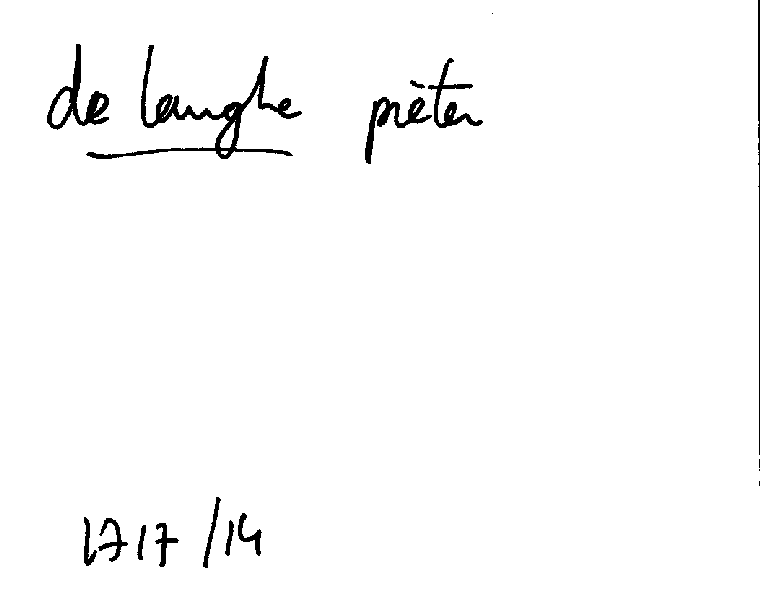 de langhe pieter
1717/14